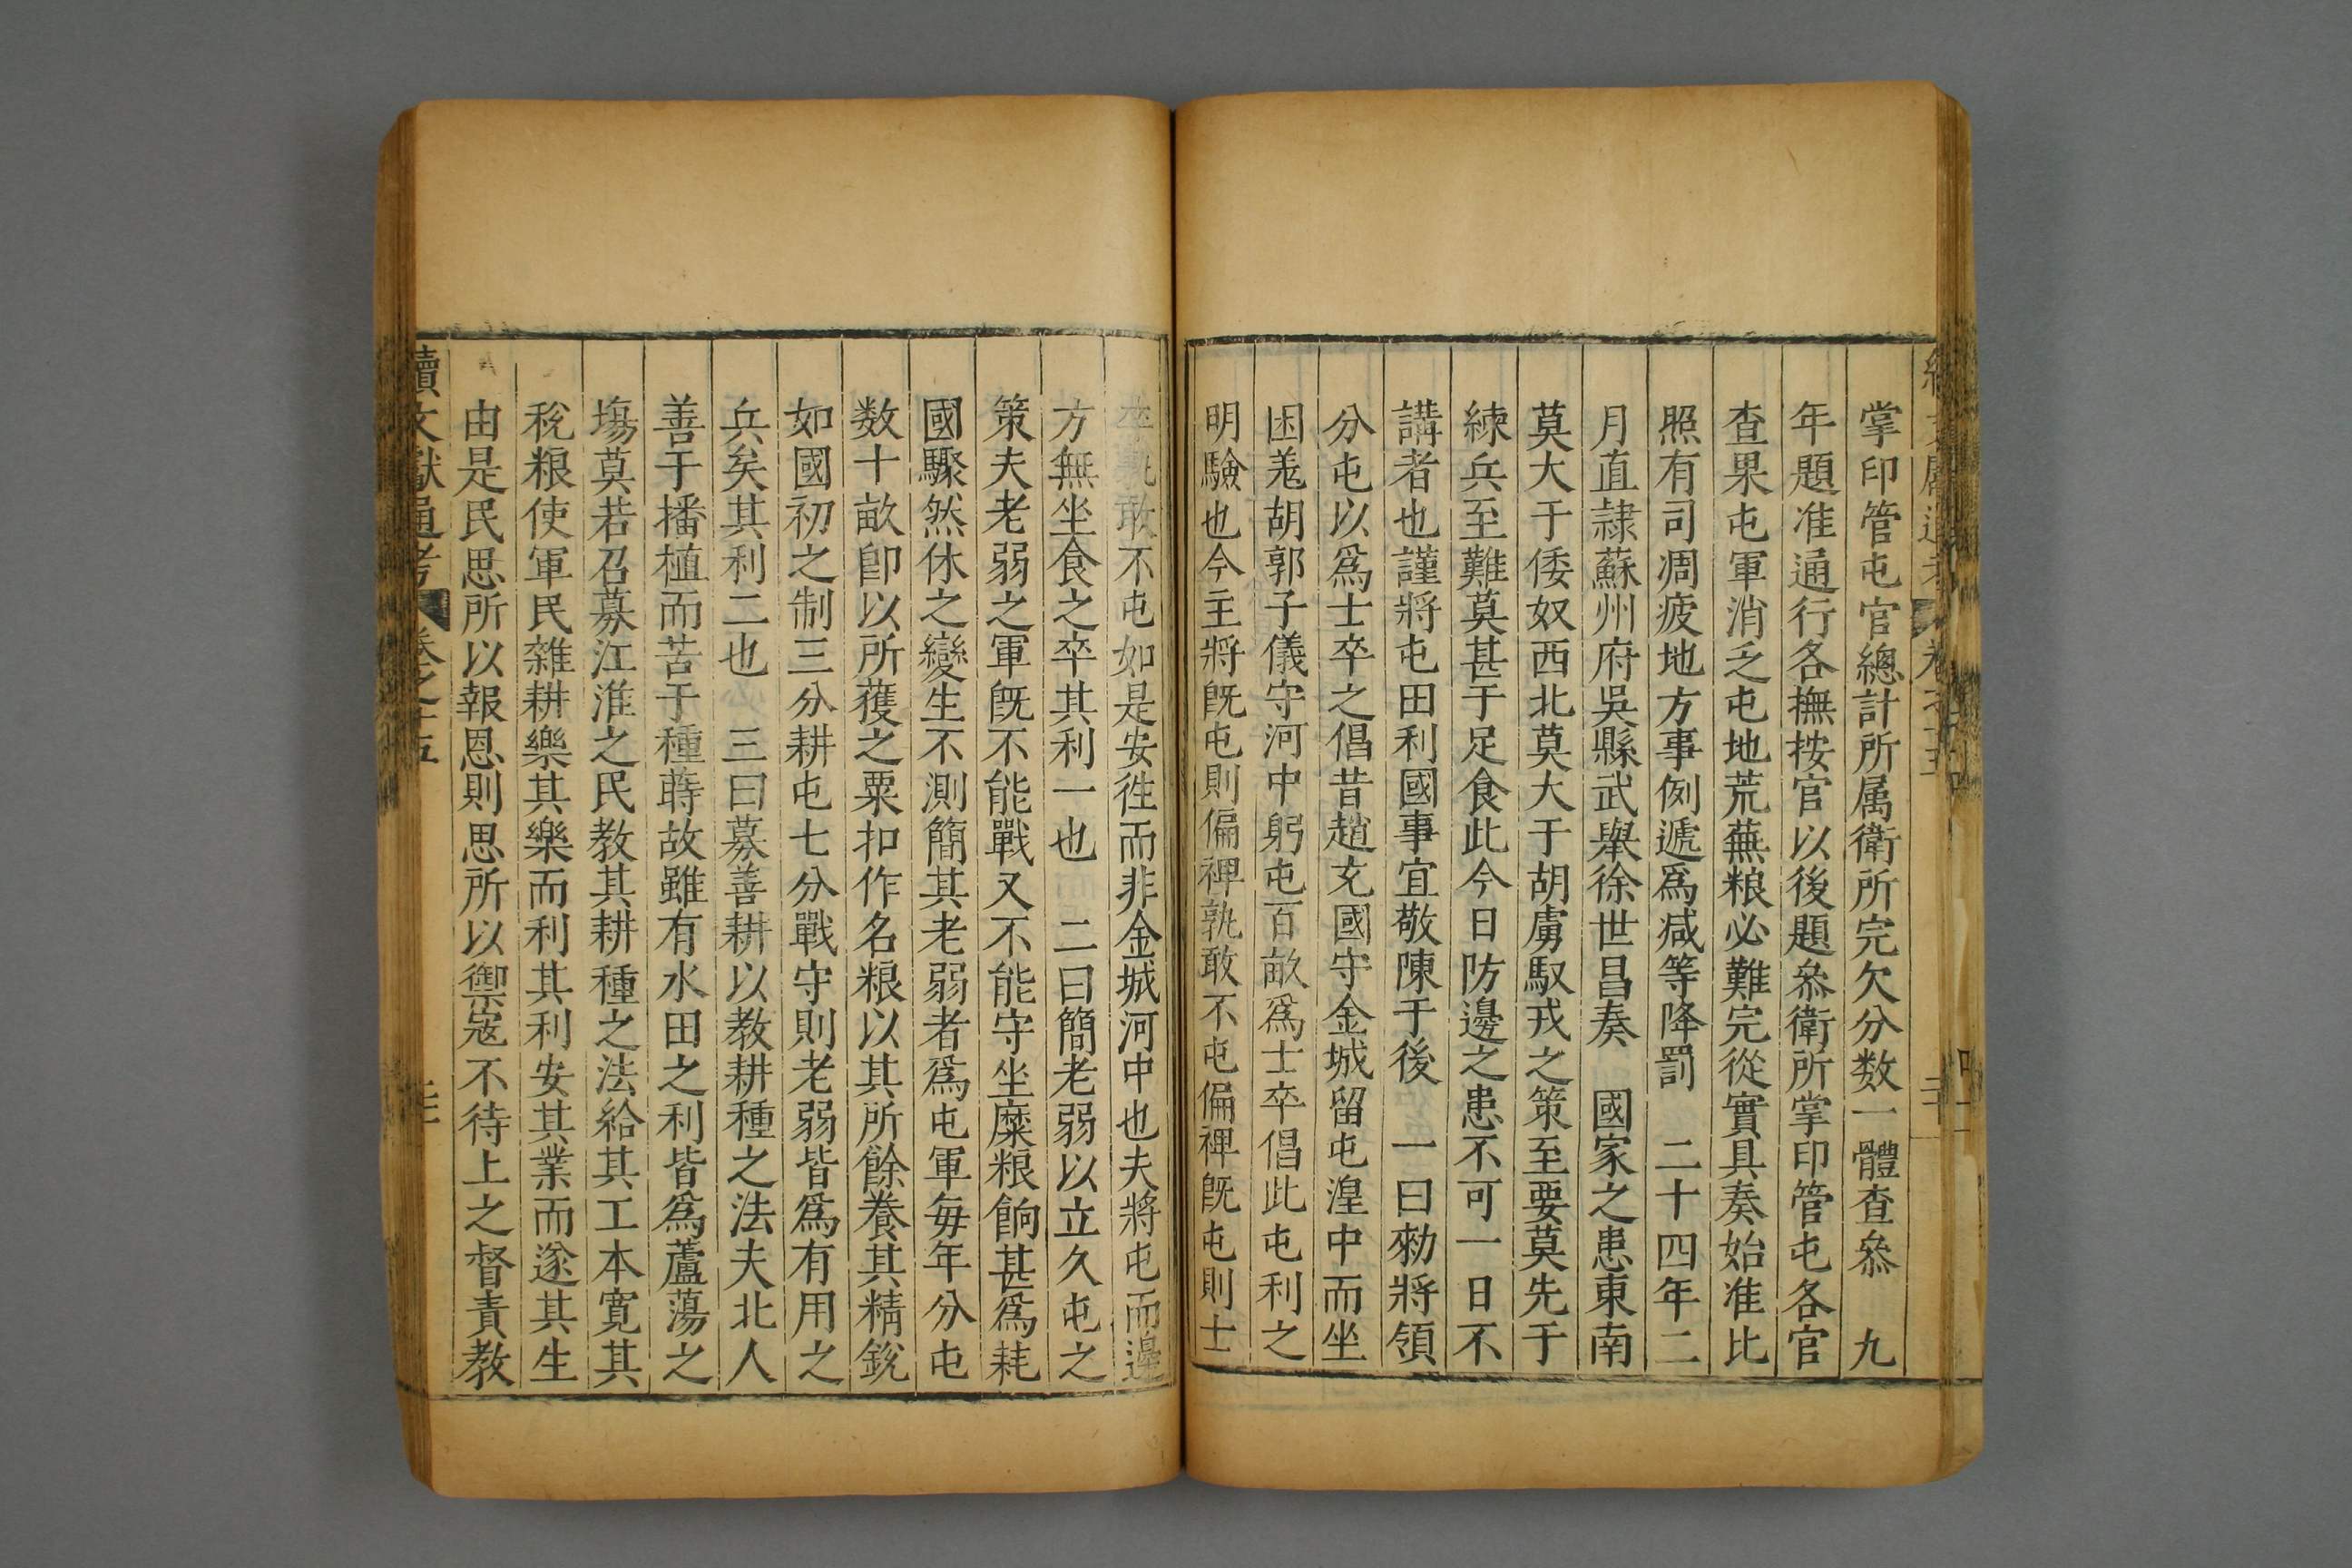 掌印管屯官總計所属衛所完欠分数一體查叅　九
年題准通行各撫按官以後題叅衛所掌印管屯各官
查果屯軍消乏屯地荒蕪粮必難完從實具奏始准比
照有司凋疲地方事例遞爲减等降罰　二十四年二
月直隷蘇州府吳縣武舉徐世昌奏　國家之患東南
莫大于倭奴西北莫大于胡虜馭戎之策至要莫先于
練兵至難莫甚于足食此今日防邊之患不可一日不
講者也謹將屯田利國事宜敬陳于後　一曰勑將領
分屯以爲士卒之倡昔趙充國守金城留屯湟中而坐
困羗胡郭子儀守河中躬屯百畝爲士卒倡此屯利之
明驗也今主將旣屯則偏裨孰敢不屯偏裨旣屯則士
卒孰敢不屯如是安徃而非金城河中也夫將屯而邊
方無坐食之卒其利一也　二曰簡老弱以立久屯之
策夫老弱之軍旣不能戰又不能守坐糜粮餉甚爲耗
國驟然休之變生不測簡其老弱者爲屯軍毎年分屯
数十畝卽以所獲之粟扣作名粮以其所餘養其精銳
如國初之制三分耕屯七分戰守則老弱皆爲有用之
兵矣其利二也　三曰募善耕以教耕種之法夫北人
善于播植而苦于種蒔故雖有水田之利皆爲蘆蕩之
塲莫若召募江淮之民教其耕種之法給其工本寛其
稅粮使軍民雜耕樂其樂而利其利安其業而遂其生
由是民思所以報恩則思所以禦寇不待上之督責教
續文獻通考　卷之十五